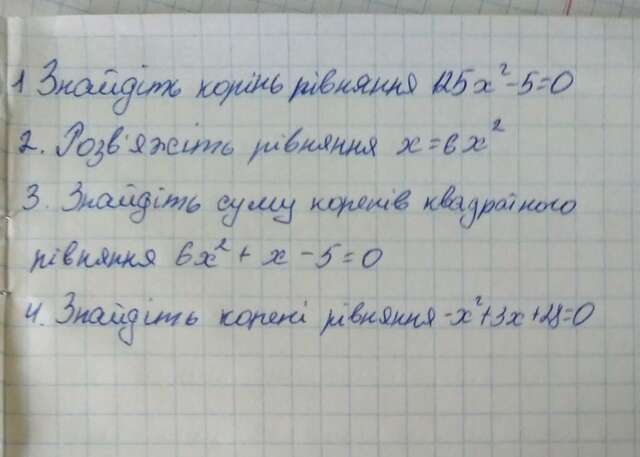 1 Знайдіть корінь рівняння 125x²-5=0
2. Розв'яжіть рівняння x=6x²
3. Знайдіть суму коренів квадратного
рівняння 6x²+x-5=0
4. Знайдіть корені рівняння -x²+3x+28=0